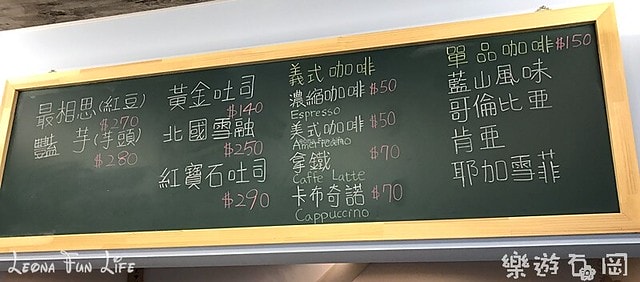 最相思(紅豆)
$270
豔芋(芋頭)
$280
黃金吐司
$140
北國雪融
$250
紅寶石吐司
$290
義式咖啡
濃縮咖啡 $50
Espresso
美式咖啡 $50
Amaricano
拿鐵 $70
Caffe Latte
卡布奇諾 $70
Cappuccino
單品咖啡 $150
藍山風味
哥倫比亞
肯亞
耶加雪菲
LEONA FUN LIFE
樂遊石岡